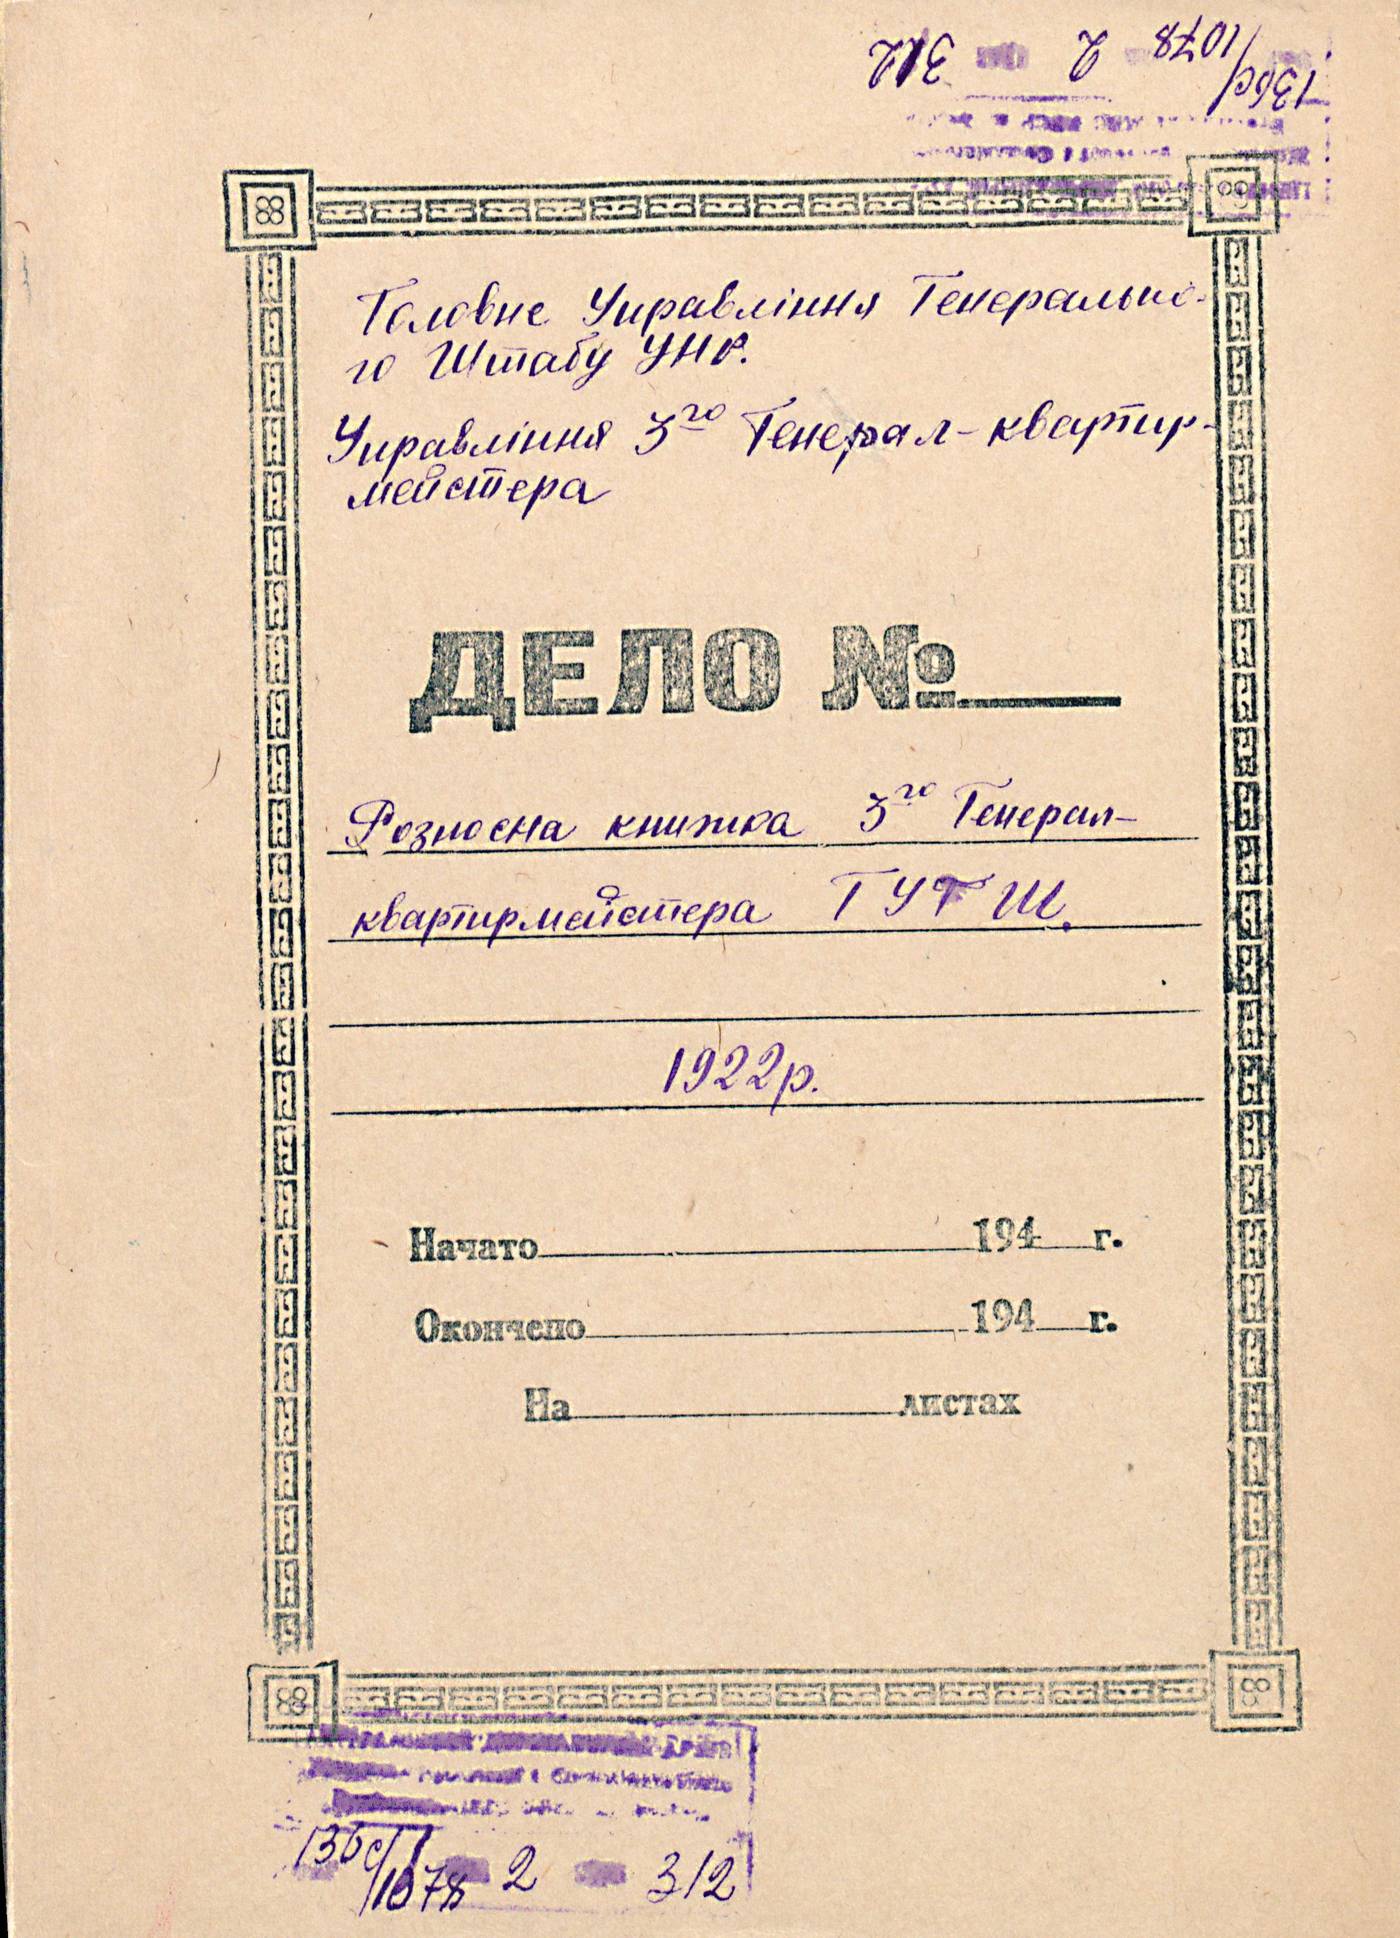 136с/1078 2 312
Головне Управління Генерально-
го Штабу УНР.
Управління 3го Генерал-квартир-
мейстера
ДЕЛО №
Розносна книжка 3го Генерал-
квартирмейстера ГУГШ.
1922р.
Начато 194 г.
Окончено 194 г.
На листах
136с/1078 2 312